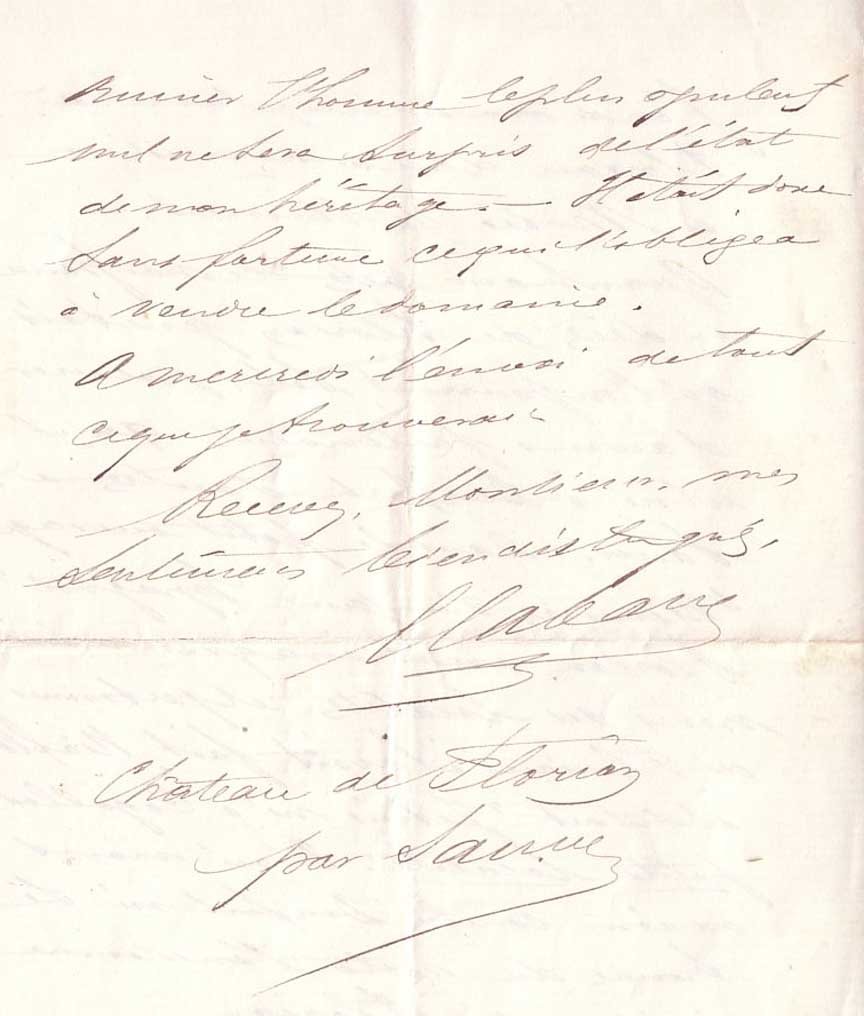 ruiner l'homme le plus opulent
nul ne sera surpris de l'état
de mon héritage. — Il était donc
sans fortune ce qui l'obligea
à vendre le domaine.
A mercredi l'envoi de tout
ce que je trouverai
Recevez, Monsieur, mes
sentiments bien distingués,
Château de Florian
par Sauve